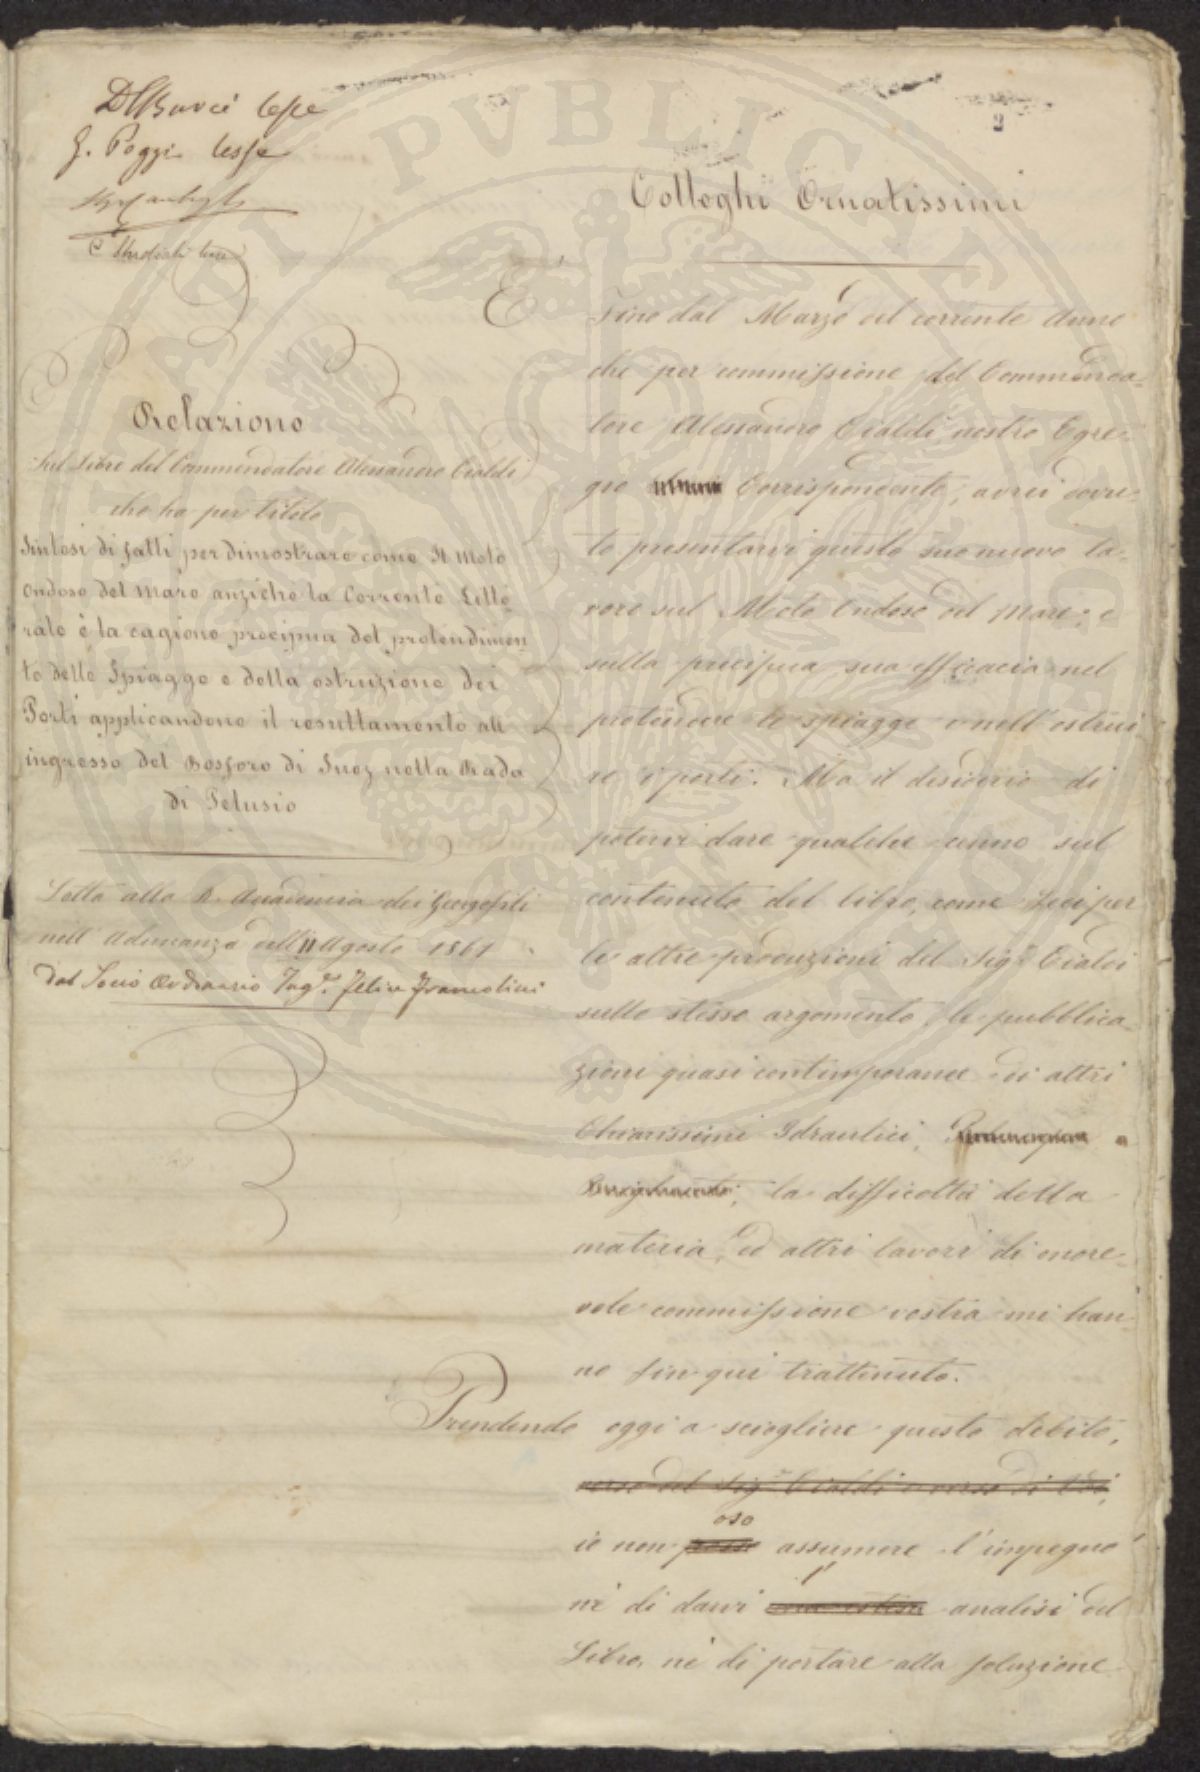 lesse
G. Poggi lesse
Relazione
Sul Libro del Commendatore Alessandro Cialdi
che ha per titolo
Sintesi di fatti per dimostrare come Il Moto
Ondoso del Mare anziche la Corrente Litto-
rale è la cagione precipua del protendimen
to delle Spiagge e della ostruzione dei
Porti applicandone il resultamento all
ingresso del Bosforo di Suez nella Rada
di Pelusio
Letta alla R. Accademia dei Georgofili
nell' Adunanza dell' 11 Agosto 1861
dal Socio Ordinario Ing.re Felice Francolini
2
Colleghi Ornatissimi
E' Fino dal Marzo del corrente Anno
che per commissione del Commenda-
tore Alessandro Cialdi nostro Egre-
gio Corrispondente, avrei dovu-
to presentarvi questo suo nuovo la-
voro sul Moto Ondoso del Mare, e
sulla precipua sua efficacia nel
protendere le spiagge e nell' ostrui
re i porti. Ma il desiderio di
potervi dare qualche cenno sul
contenuto del libro, come feci per
le altre produzioni del Sig.r Cialdi
sullo stesso argomento, le pubblica-
zioni quasi contemporanee di altri
Chiarissimi Idraulici,
la difficoltà della
materia, ed altri lavori di onore-
vole commissione vostra mi han-
no fin qui trattenuto.
Prendendo oggi a sciogliere questo debito,
verso del Sig.r Cialdi e verso di Voi,
oso
io non posso assumere l' impegno
l'
nè di darvi una estesa analisi del
Libro, nè di portare alla soluzione